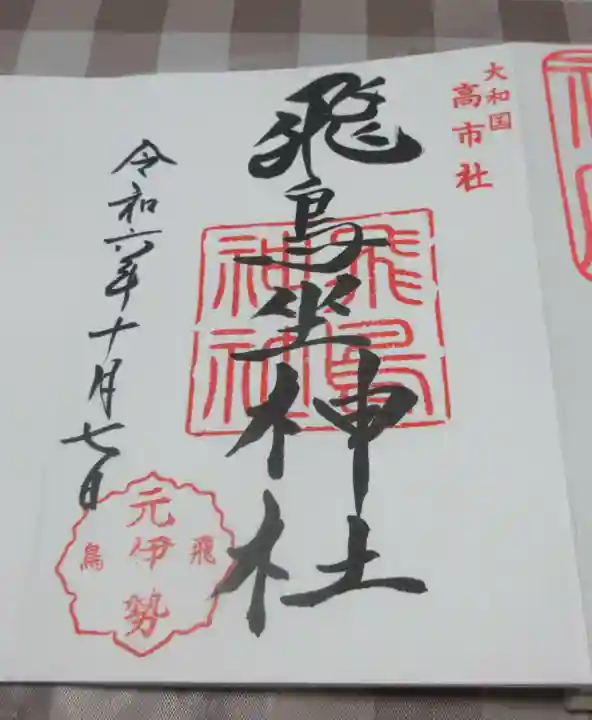 大和国
高市社
飛鳥坐神社
飛鳥
神社
令和六年十月七日
飛鳥
元伊勢